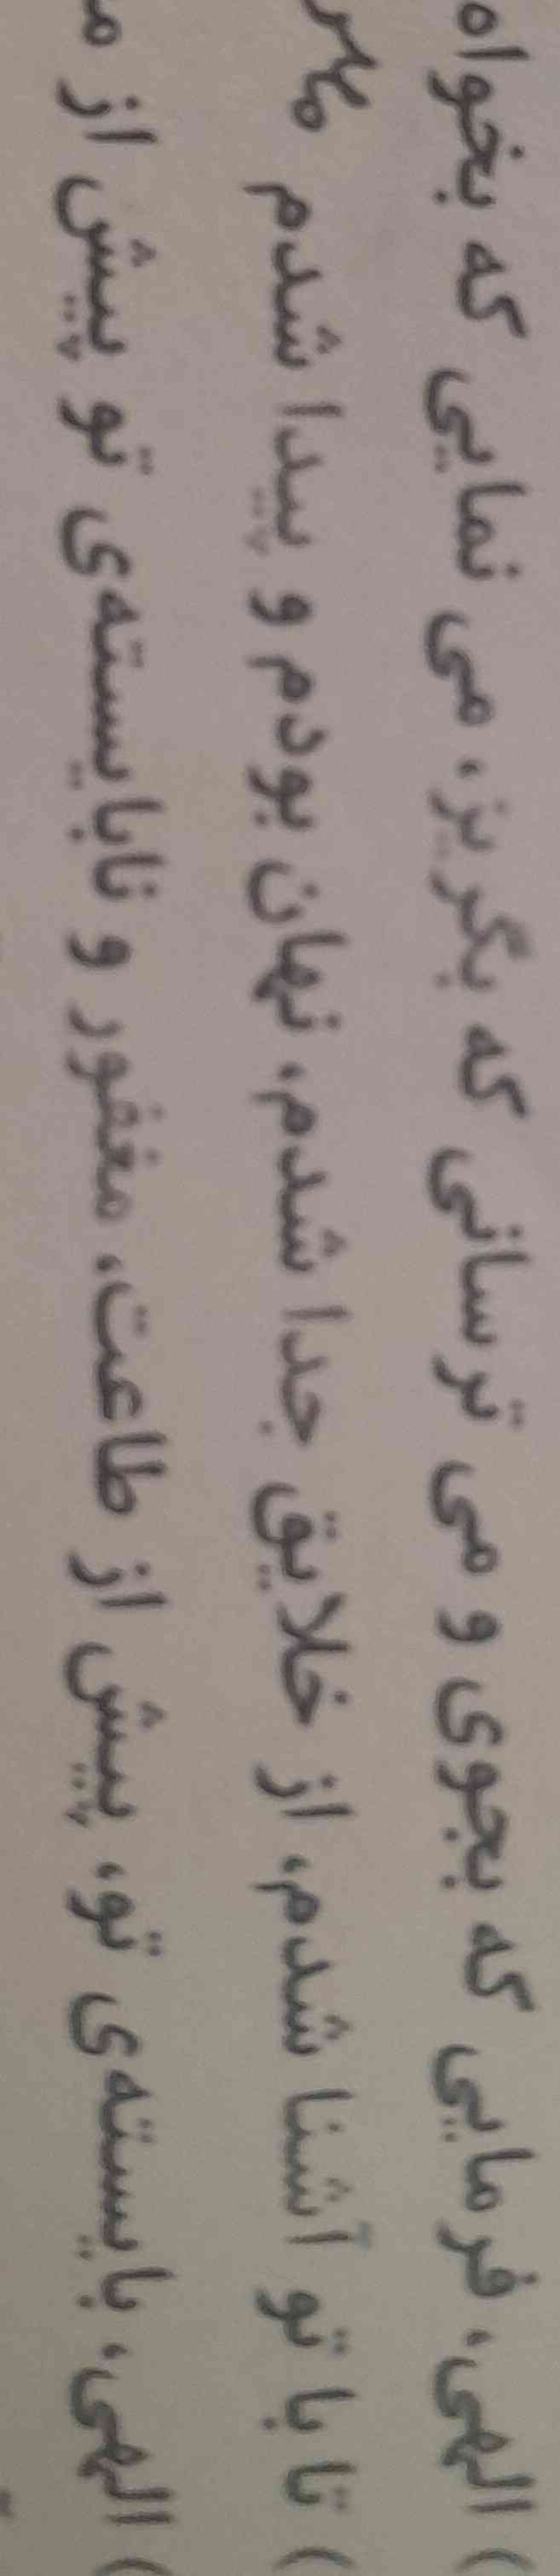 ) الهی، فرمایی که بجوی و می ترسانی که بگریز، می نمایی که بخواه
) تا با تو آشنا شدم، از خلایق جدا شدم، نهان بودم و پیدا شدم
) الهی، بایسته‌ی تو، پیش از طاعت، مغفور و نابایسته‌ی تو پیش از